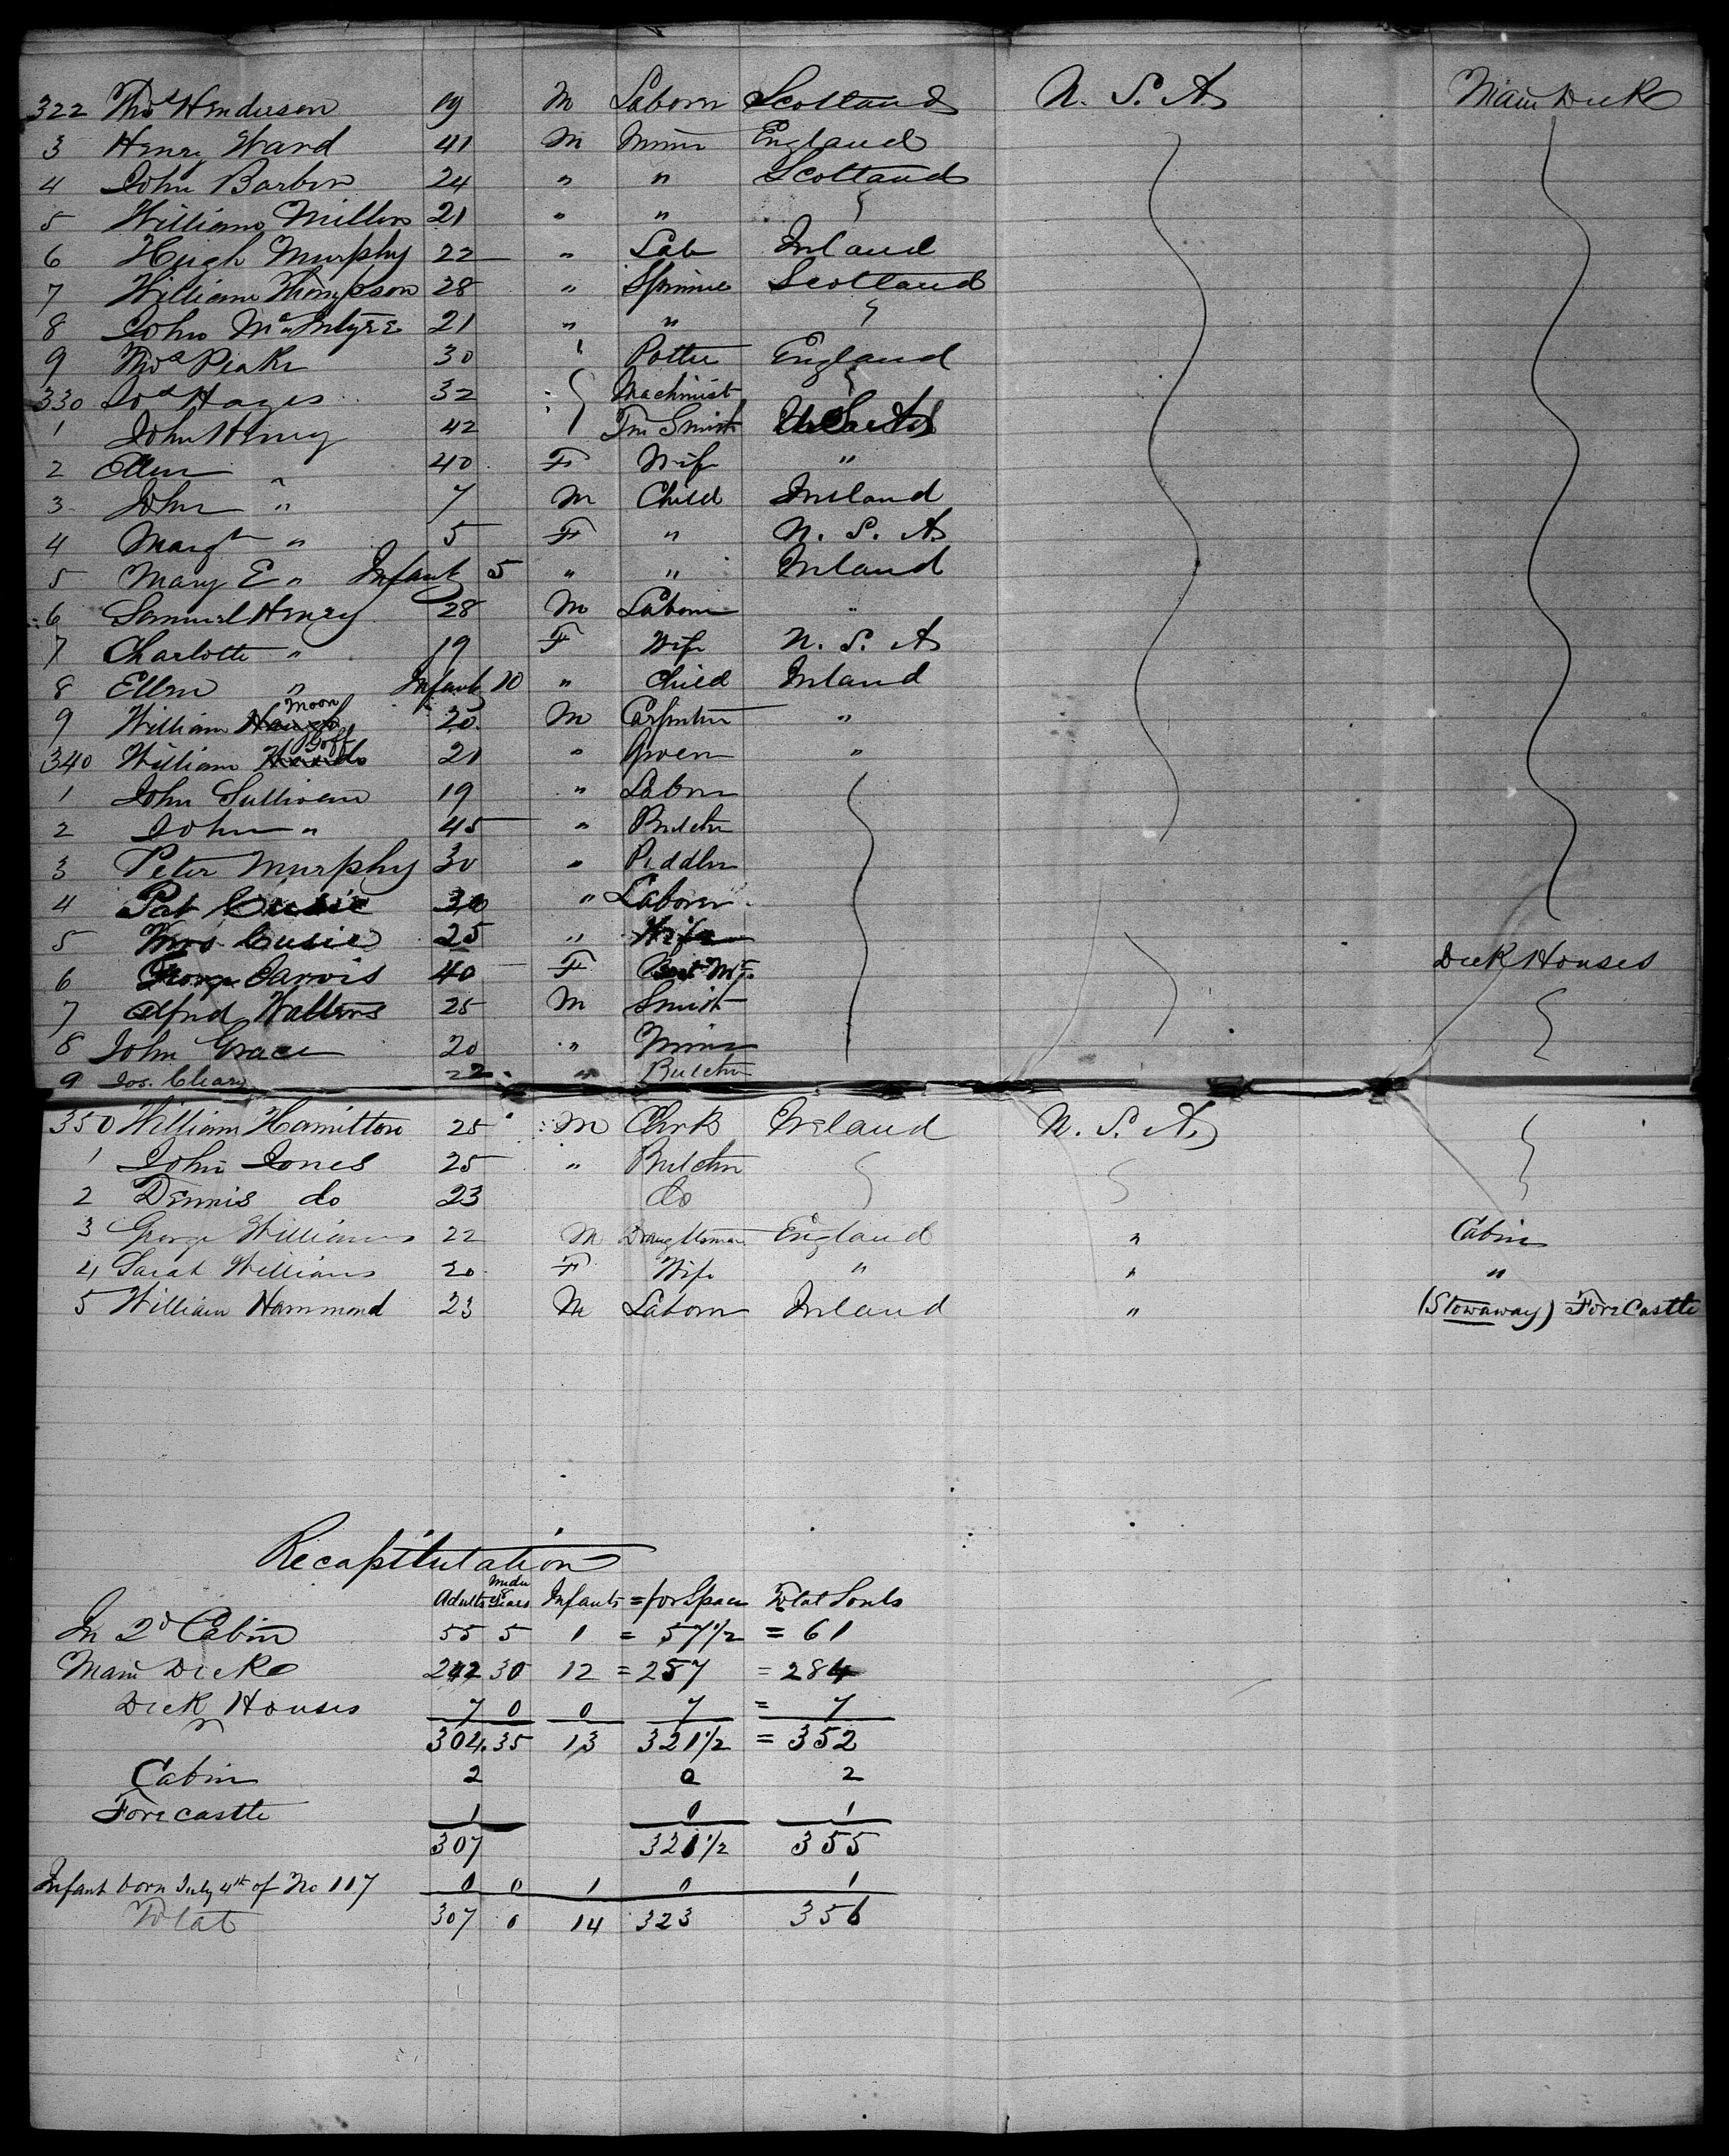 322 Thos Henderson 19 M Laborer Scotland U. S. A. Main Deck
3 Henry Ward 41 M Miner England
4 John Barbor 24 " " Scotland
5 William Miller 21 " "
6 Hugh Murphy 22 " Lab Ireland
7 William Thompson 28 " Spinner Scotland
8 John McIntyre 21 " "
9 Thos Peake 30 ' Potter England
330 Jos Hayes 32 Machinist
1 John Henry 42 Tin Smith
2 Ellen " 40 F Wife "
3 John " 7 M Child Ireland
4 Margt " 5 F " U. S. A.
5 Mary E " Infant 5 " " Ireland
6 Samuel Henry 28 M Laborer "
7 Charlotte " 19 F Wife U. S. A
8 Ellen " Infant 10 " Child Ireland
9 William Moon 20 M Carpenter "
340 William Goff 21 " Groom "
1 John Sullivan 19 " Laborer
2 John " 45 " Butcher
3 Peter Murphy 30 " Peddler
4 Pat Cusic 30 " Laborer
5 Mrs Cusic 25 " Wife
6 George Jarvis 40 F Deck Houses
7 Alfred Walters 25 M Smith
8 John Grace 20 " Miner
9 Jos. Cleary 22 " Butcher
350 William Hamilton 25 M Clerk Ireland U. S. A.
1 John Jones 25 " Butcher
2 Dennis do 23 do
3 George Williams 22 M Draughtsman England " Cabin
4 Sarah Williams 20 F Wife " " "
5 William Hammond 23 M Laborer Ireland " (Stowaway) Fore Castle
Recapitulation
Adults under 8 Years Infants = for Space Total Souls
In 2d Cabin 55 5 1 = 57 1/2 = 61
Main Deck 242 30 12 = 257 = 284
Deck Houses 7 0 0 7 = 7
304. 35 13 321 1/2 = 352
Cabin 2 0 2
Forecastle 1 0 1
307 321 1/2 355
Infant born July 4th of No 117 0 0 1 0 1
Total 307 0 14 323 356